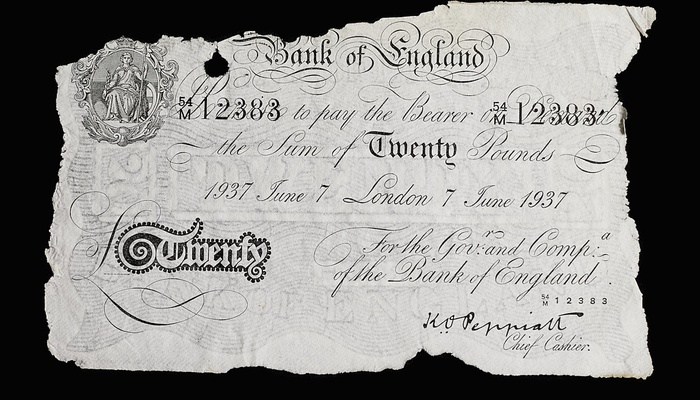 Bank of England
54/M 12383 to pay the Bearer on 54/M 12383
the Sum of Twenty Pounds
1937 June 7 London 7 June 1937
£Twenty
For the Gov:r and Comp:a
of the Bank of England.
54/M 12383
K.O. Peppiatt
Chief Cashier.